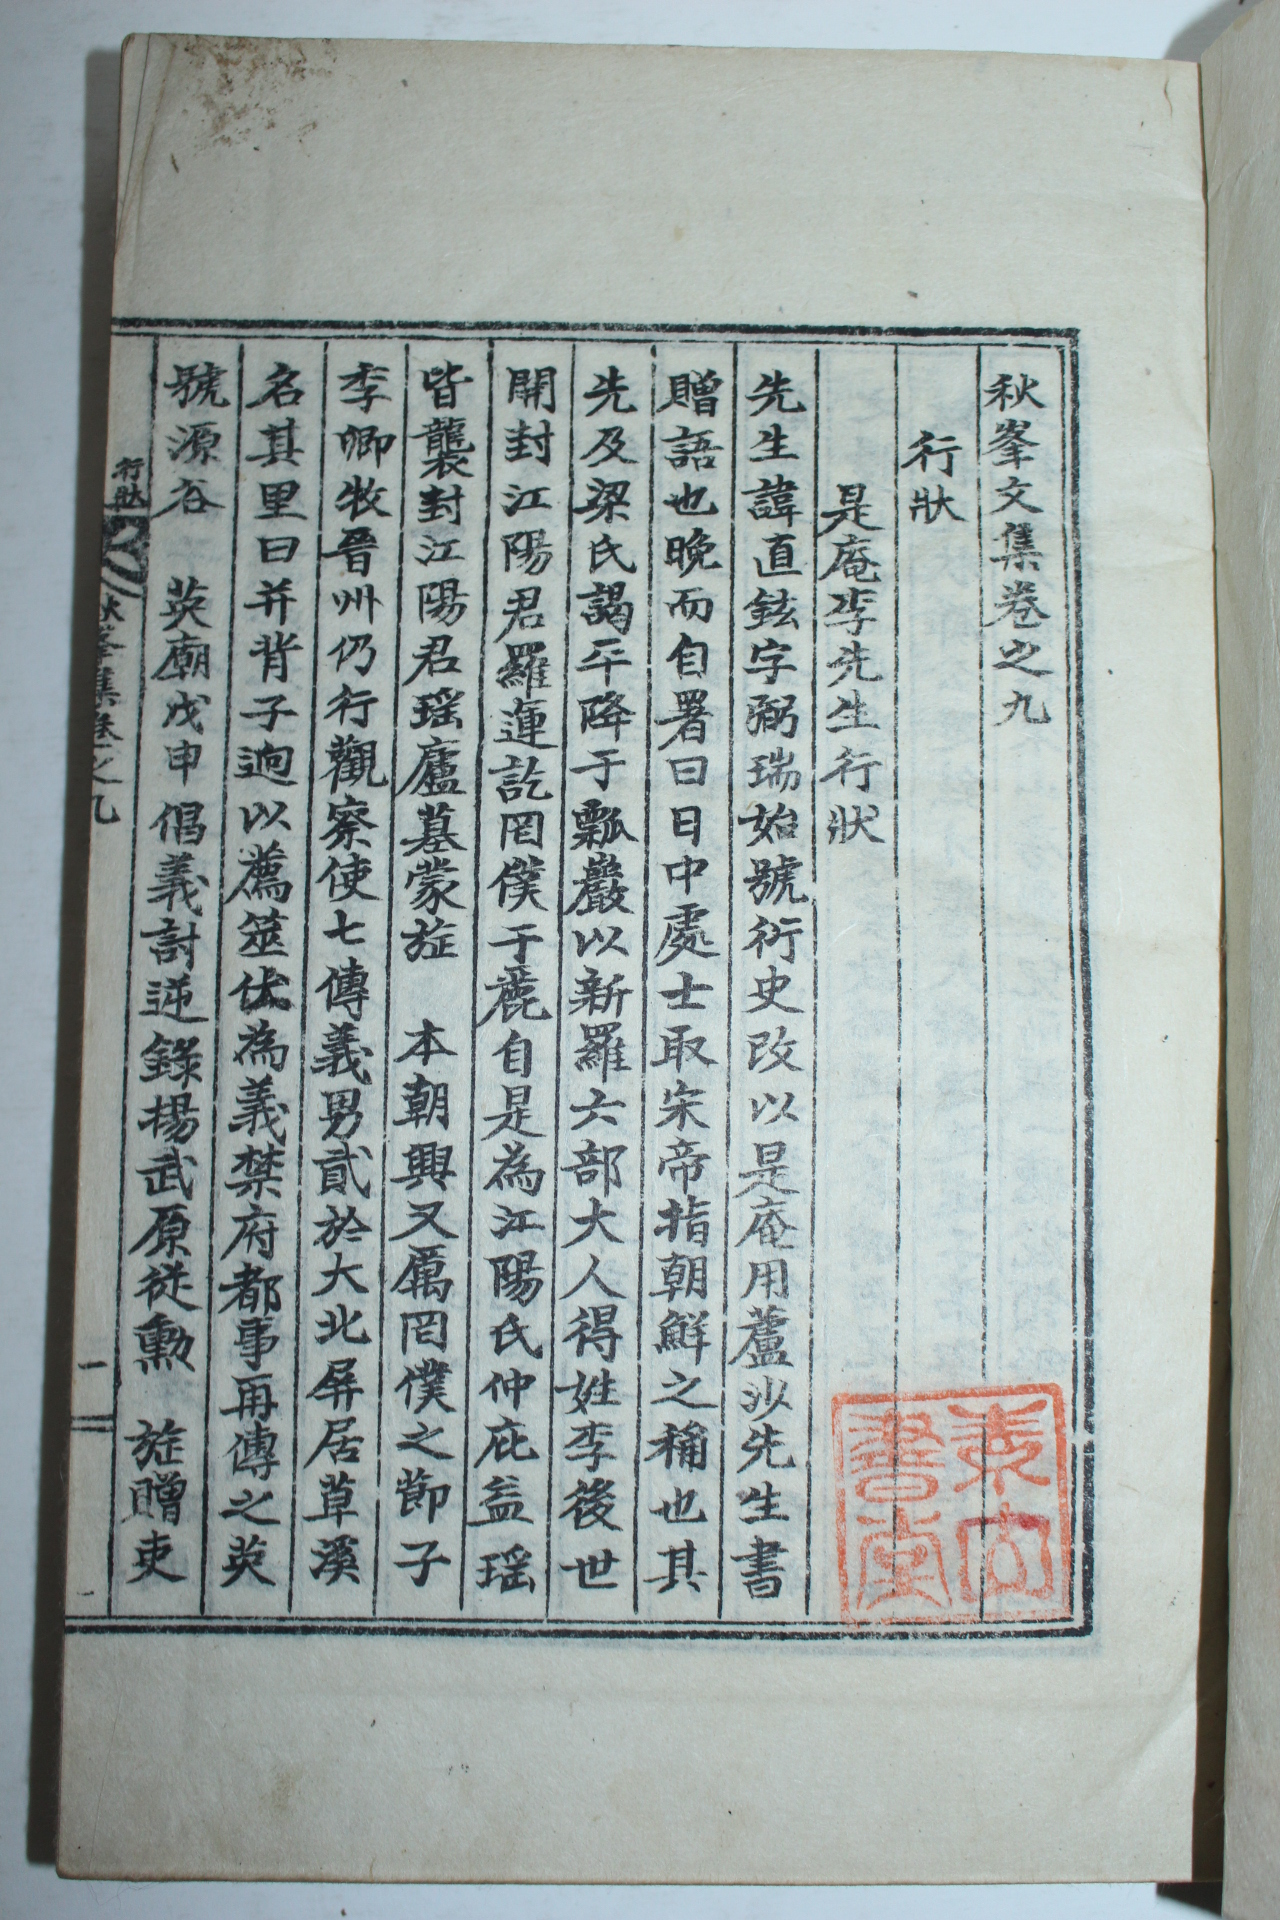 秋峯文集卷之九
行狀
是庵李先生行狀
先生諱直鉉字弼瑞始號衍史改以是庵用蘆沙先生書
贈語也晚而自署曰日中處士取宋帝指朝鮮之稱也其
先及梁氏謁平降于瓢巖以新羅六部大人得姓李後世
開封江陽君羅運訖罔僕于麗自是為江陽氏仲庇益瑶
皆襲封江陽君瑶廬墓蒙旌 本朝興又厲罔僕之節子
李卿牧晉州仍行觀察使七傳義男貳於大北屏居草溪
名其里曰并背子逈以薦筮仕為義禁府都事再傳之英
號源谷 英廟戊申倡義討逆錄揚武原從勳 旌贈吏
行狀
秋峯集卷之九
一
書堂